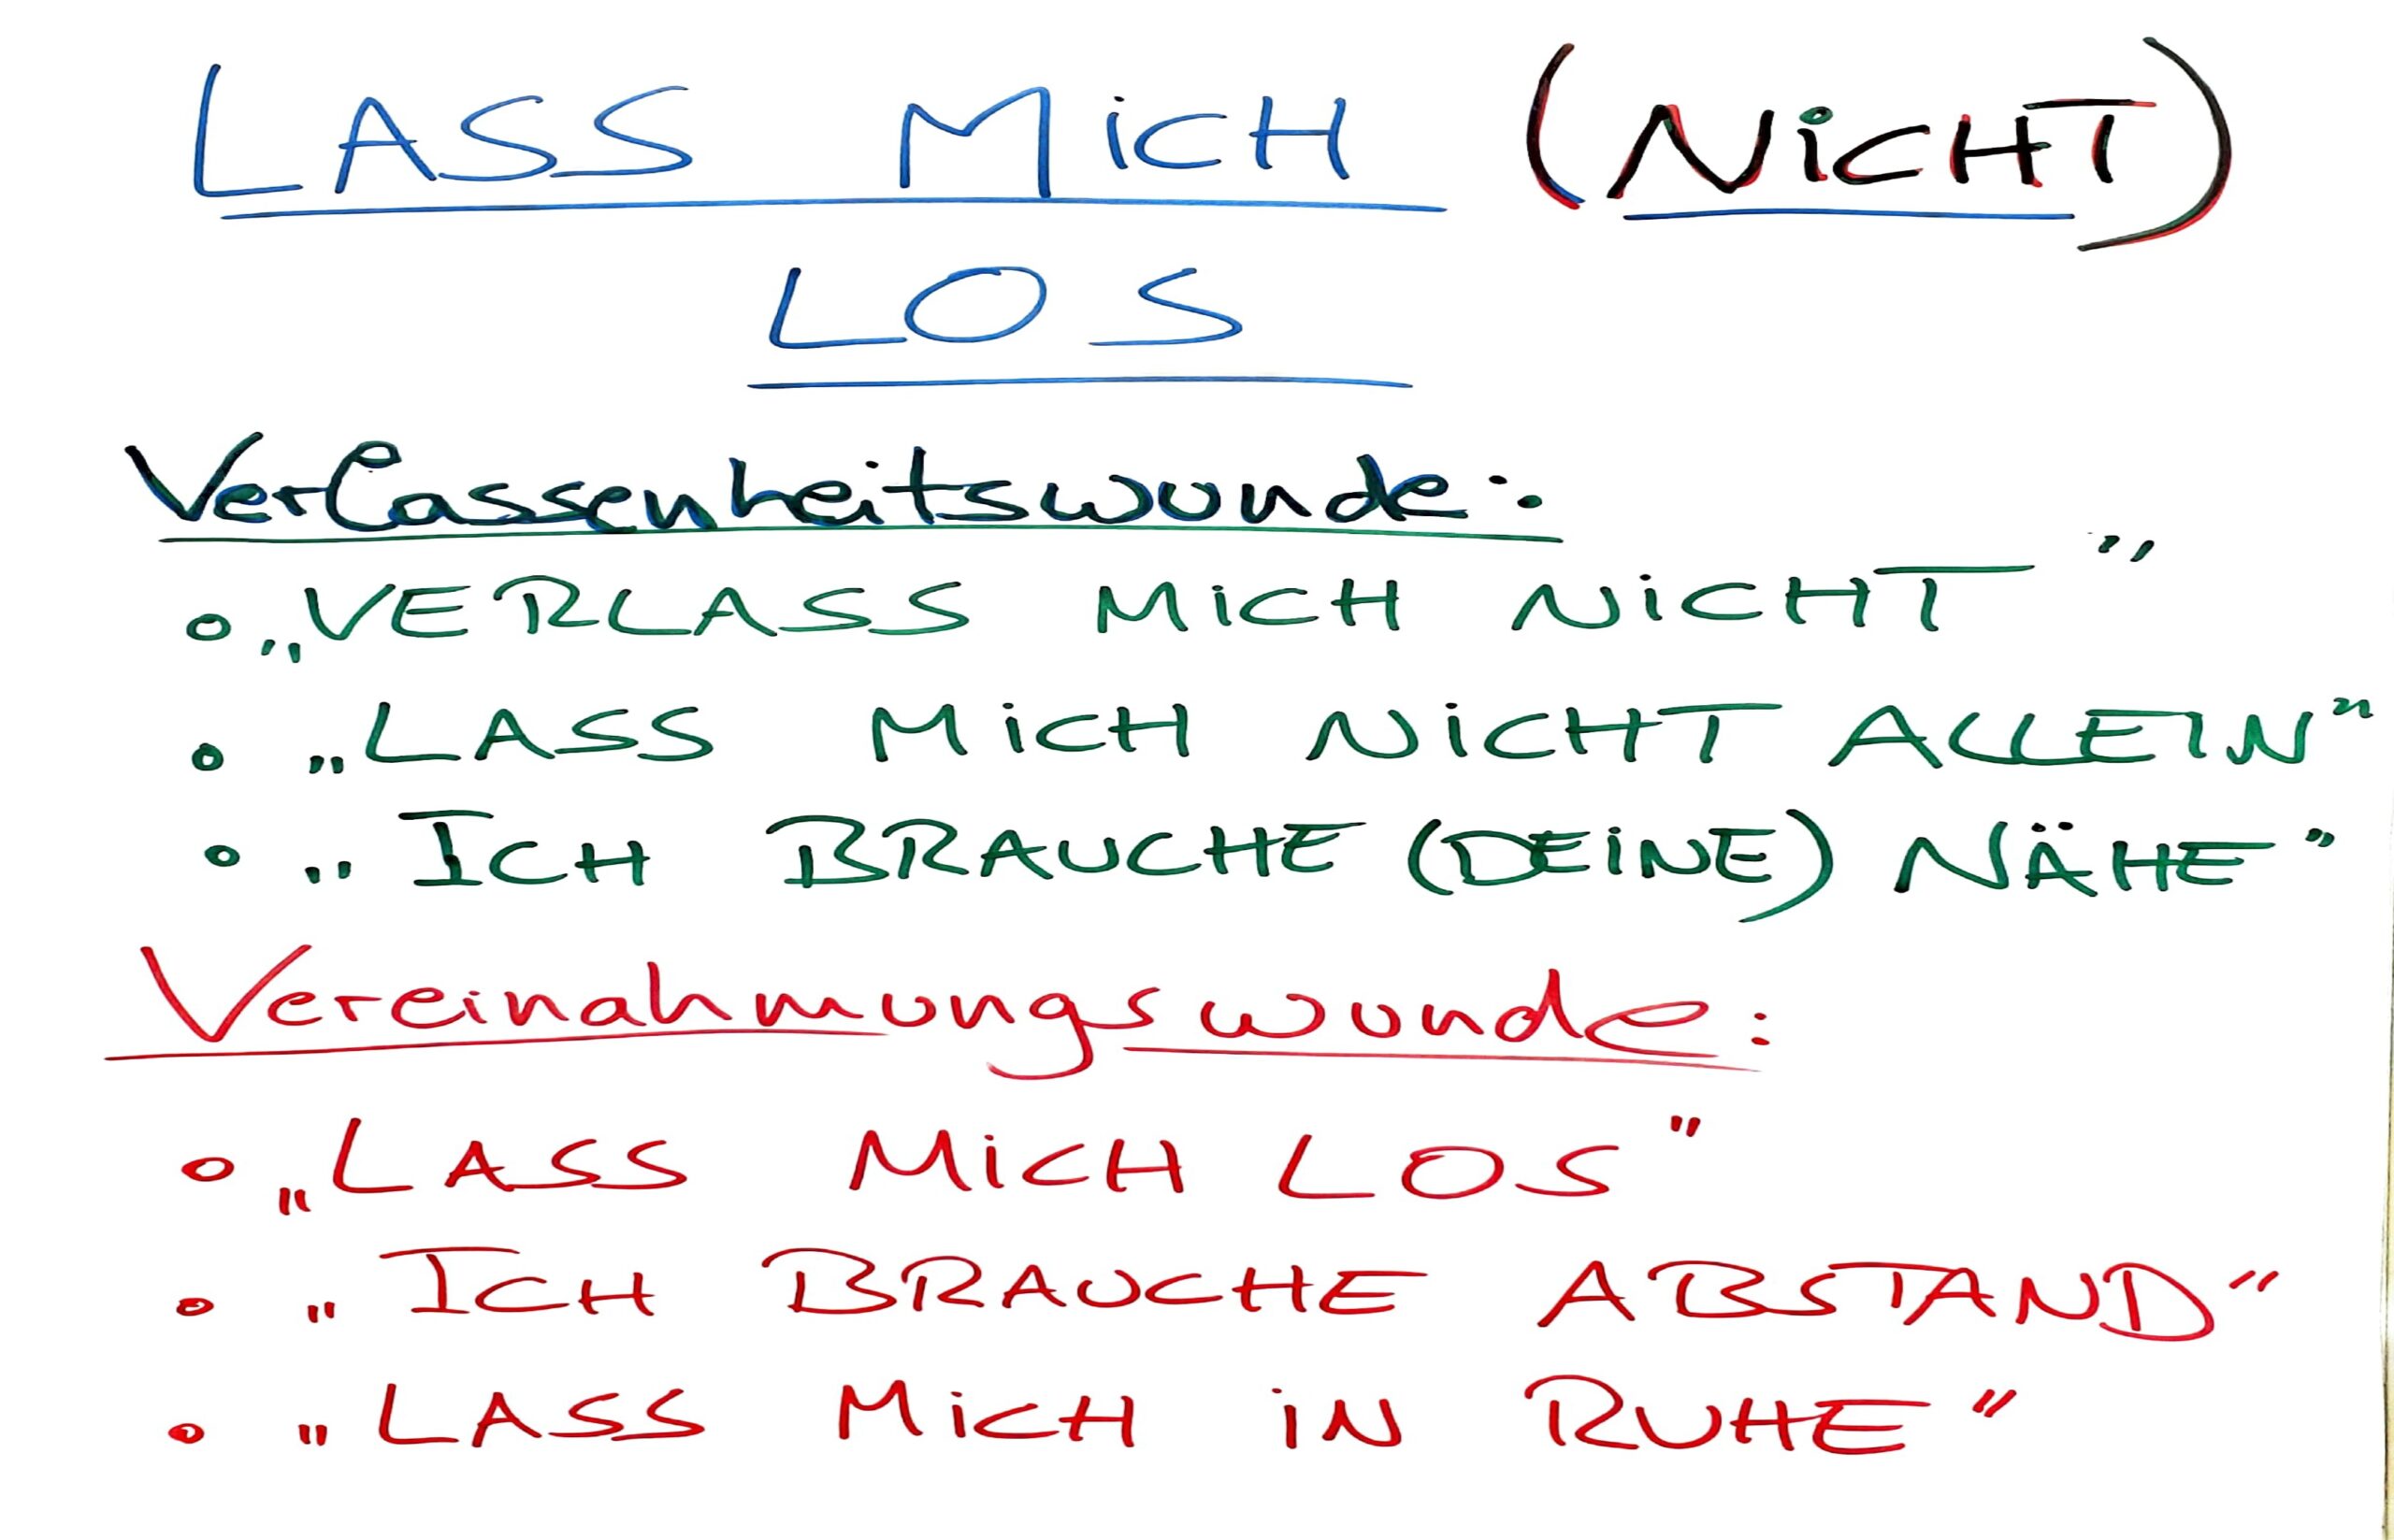 LASS MiCH (NiCHT)
LOS
Verlassenheitswunde:
o „VERLASS MiCH NiCHT"
o „LASS MiCH NiCHT ALLEIN"
o „ICH BRAUCHE (DEiNE) NÄHE"
Vereinahmungswunde:
o „LASS MiCH LOS"
o „ICH BRAUCHE ABSTAND"
o „LASS MiCH iN RUHE"